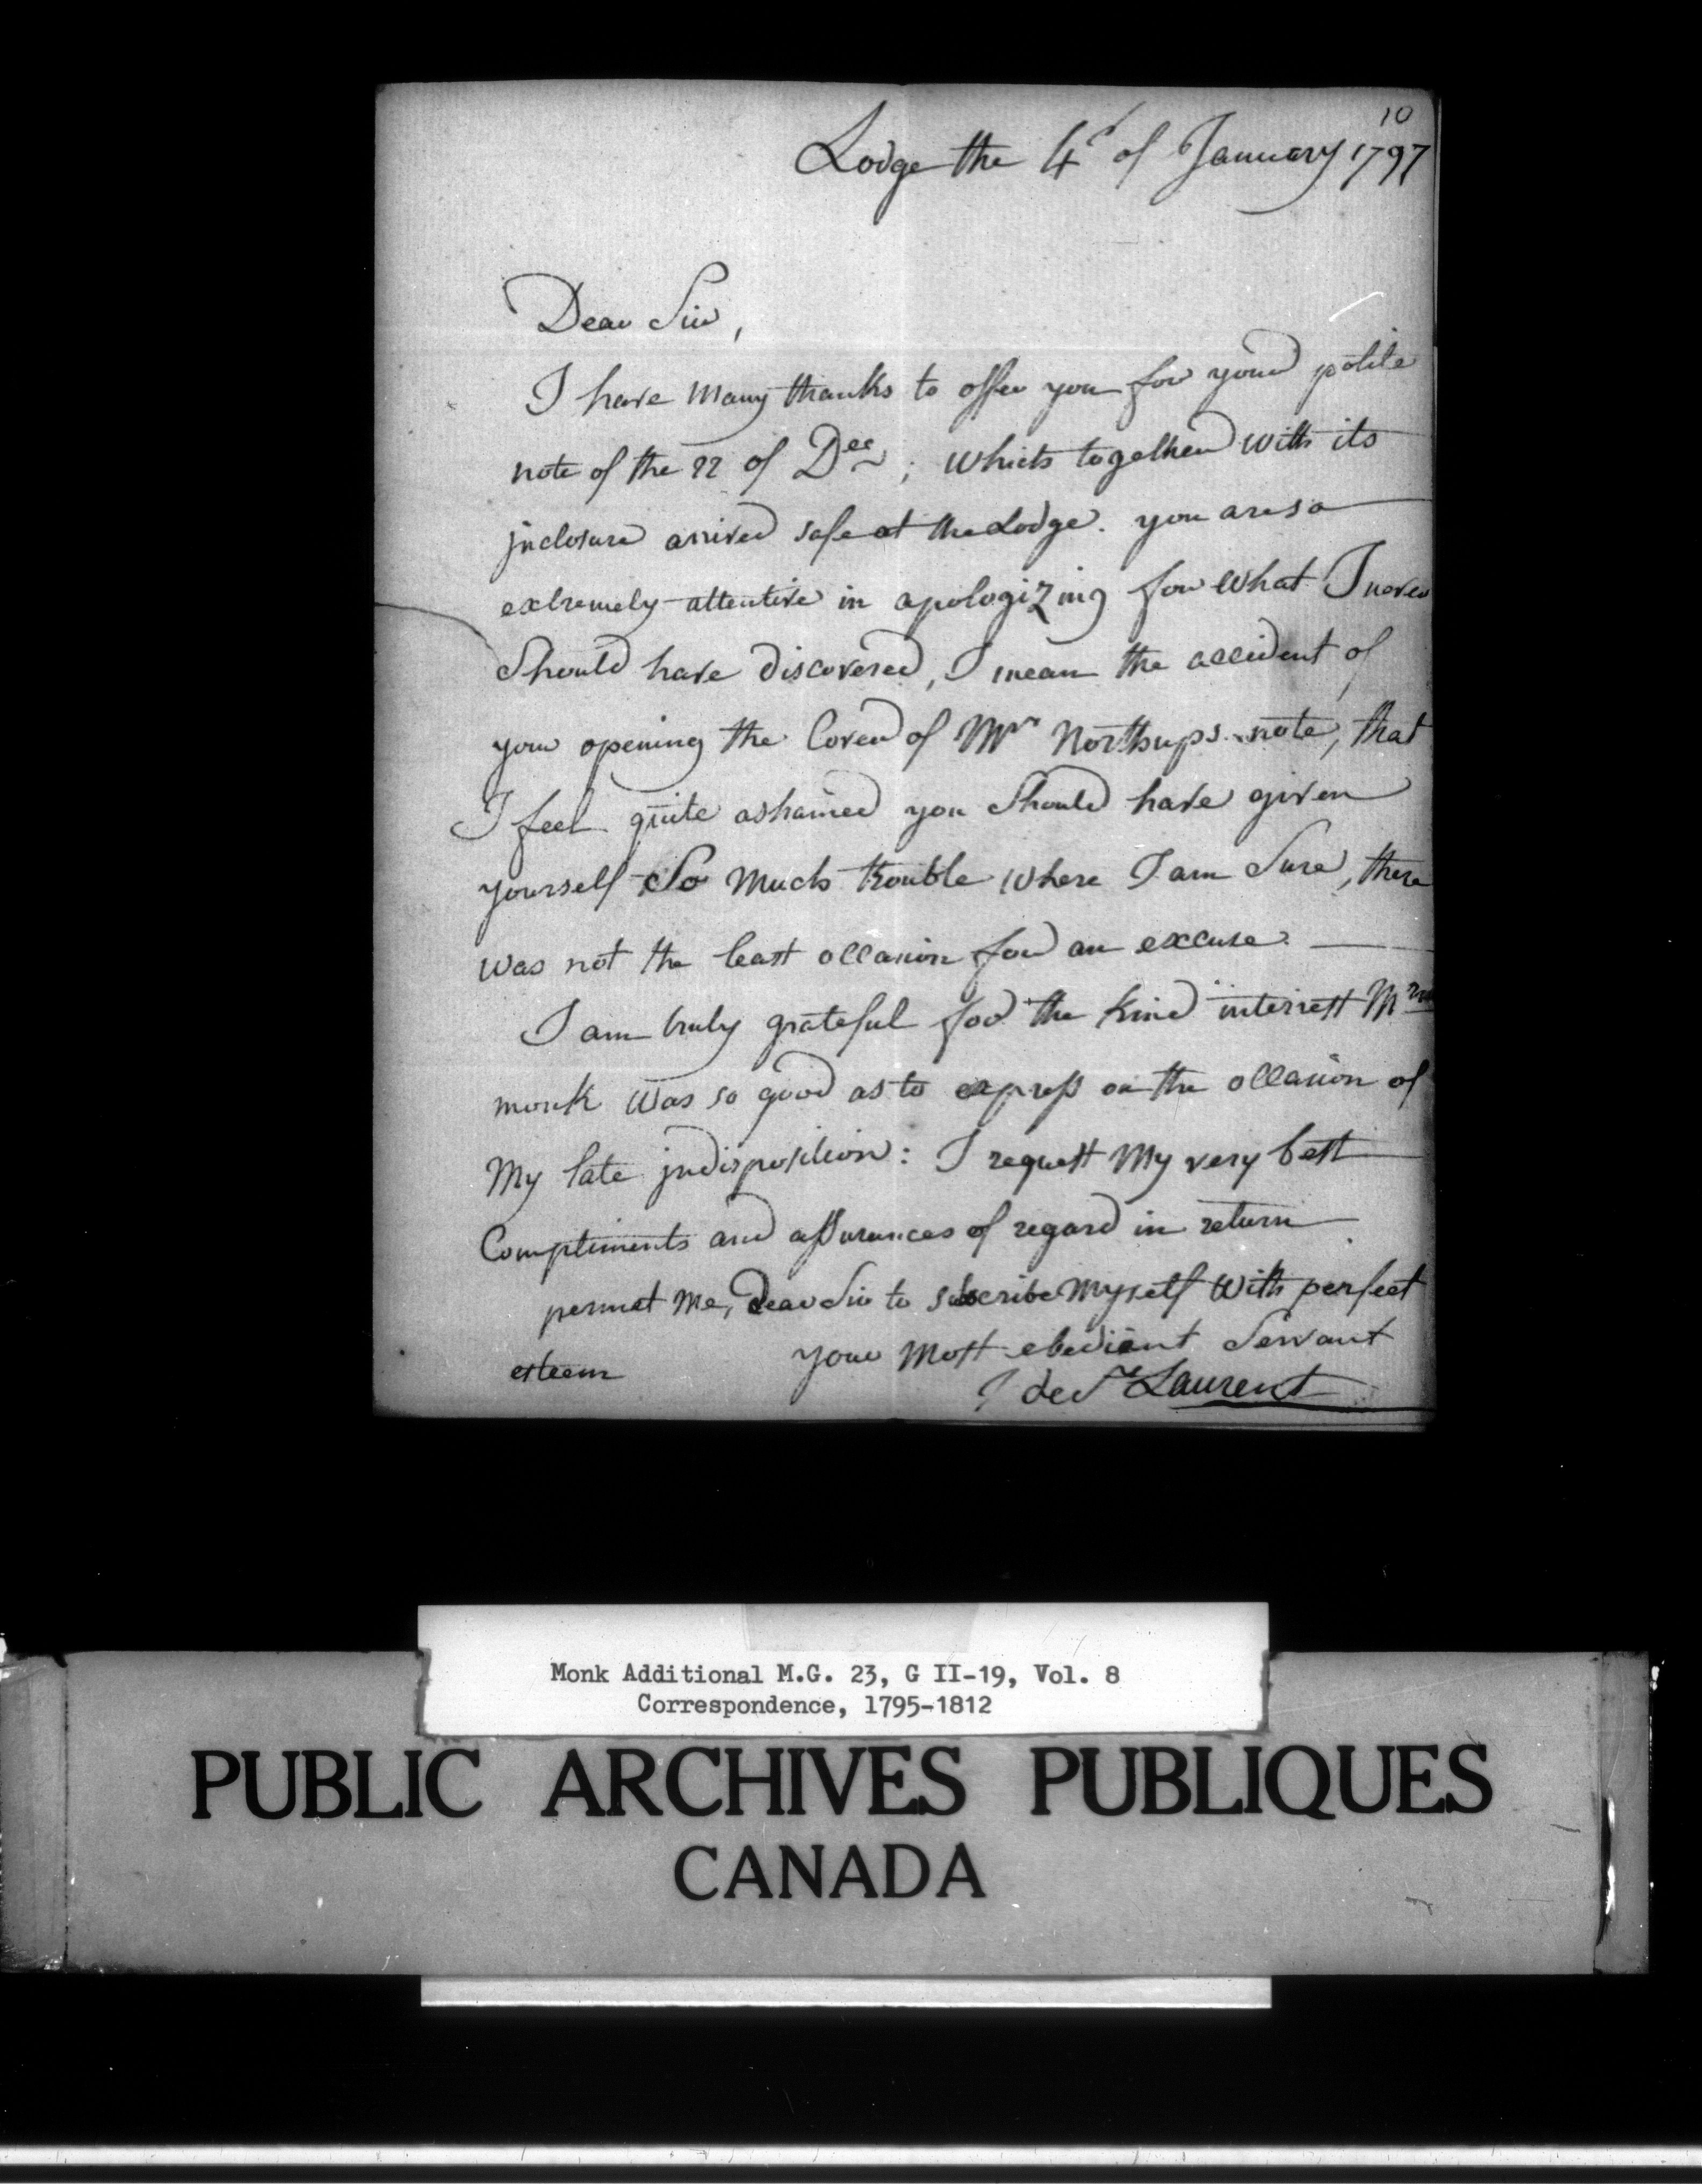 10
Lodge the 4th of January 1797
Dear Sir,
I have Many thanks to offer you for your polite
note of the 22 of Dec; which together with its
jnclosure arrived safe at the Lodge. you are so
extremely attentive in apologizing for what I never
Should have discovered, I mean the accident of
your opening the Cover of Mrs Northups note, that
I feel quite ashamed you Should have given
yourself So Much trouble where I am Sure, there
was not the least occasion for an excuse.
I am truly grateful for the kind interest Mrs
monk was so good as to express on the occasion of
My late jndisposition: I request My very best
Compliments and assurances of regard in return
permit Me, Dear Sir to subscribe Myself with perfect
esteem your Most obedient Servant
J de St Laurent
Monk Additional M.G. 23, G II-19, Vol. 8
Correspondence, 1795-1812
PUBLIC ARCHIVES PUBLIQUES
CANADA